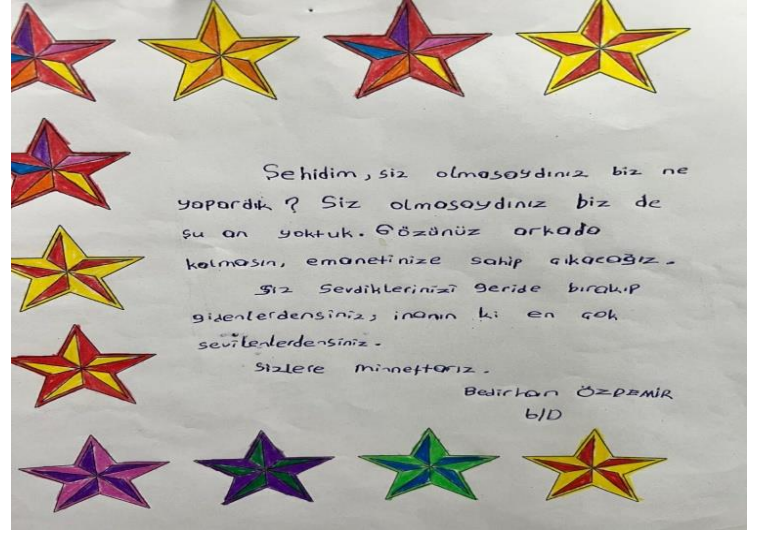 Şehidim, siz olmasaydınız biz ne
yapardık? Siz olmasaydınız biz de
şu an yoktuk. Gözünüz arkada
kalmasın, emanetinize sahip çıkacağız.
Siz sevdiklerinizi geride bırakıp
gidenlerdensiniz, inanın ki en çok
sevilenlerdensiniz.
Sizlere minnettarız.
Bedirhan ÖZDEMİR
6/D